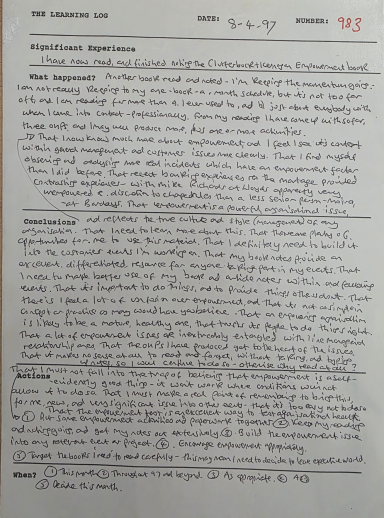 THE LEARNING LOG
DATE: 8-4-97 NUMBER: 983
Significant Experience
I have now read, and finished noting the Clutterbuck & Kernaghan Empowerment book
What happened? Another book read and noted - I'm keeping the momentum going.
I am not really keeping to my one-book-a-month schedule, but it's not too far
off and I am reading far more than I ever used to, and
when I came into contact - professionally. From my reading I have come up with so far
three and I may well produce more, plus one or more activities.
That I now know much more about empowerment, and I feel I see its context
within good management and customer issues more clearly. That I find myself
observing and analysing more real incidents which have an empowerment factor
than I did before. That recent banking experiences on the mortgage provided
contrasting experiences - with Mike Richards at Lloyds apparently more
empowered & discretion to change rules than a less senior person - Moira,
at Barclays. That empowerment is a powerful organisational issue,
Conclusions and reflects the true culture and style (management) of an
organisation. That I need to learn more about this. That there are plenty of
opportunities for me to use this material. That I definitely need to build it
into the customer events I'm working on. That my book notes provide an
excellent differentiated resource for anyone taking part in my events. That
I need to make better use of my book and article notes within and following
events. That it's important to do things, and to provide things others don't. That
there is I feel a lot of confusion over empowerment, and that it's not as simple in
concept or practice as many would have you believe. That an empowering organisation
is likely to be a mature, healthy one, that trusts its people to do things right.
That a lot of empowerment issues are inextricably entangled with line managerial
relationship ones. That the OHPs I have produced get to the heart of the issues.
That it makes no sense at all to read and forget, without taking, and keeping
notes, so I can - otherwise why read at all?
Actions That I must not fall into the trap of believing that empowerment is a self-
evidently good thing - it won't work where conditions will not
allow it to do so. That I must make a real point of remembering to bring this
for me new, and very significant issue into other events - that it's too easy not to do so
That the empowerment test is an excellent way to test organisational health.
① Put some empowerment activities and paperwork together ② Keep my reading
and noting going and get my notes out extensively ③ Build the empowerment issue
into any relevant event or project ④ Encourage empowerment appropriately.
⑤ Target the books I need to read carefully - this may mean I need to decide to leave executive world.
When? ① This month ② Throughout 97 and beyond ③ As appropriate ④ As ③
⑤ Decide this month.